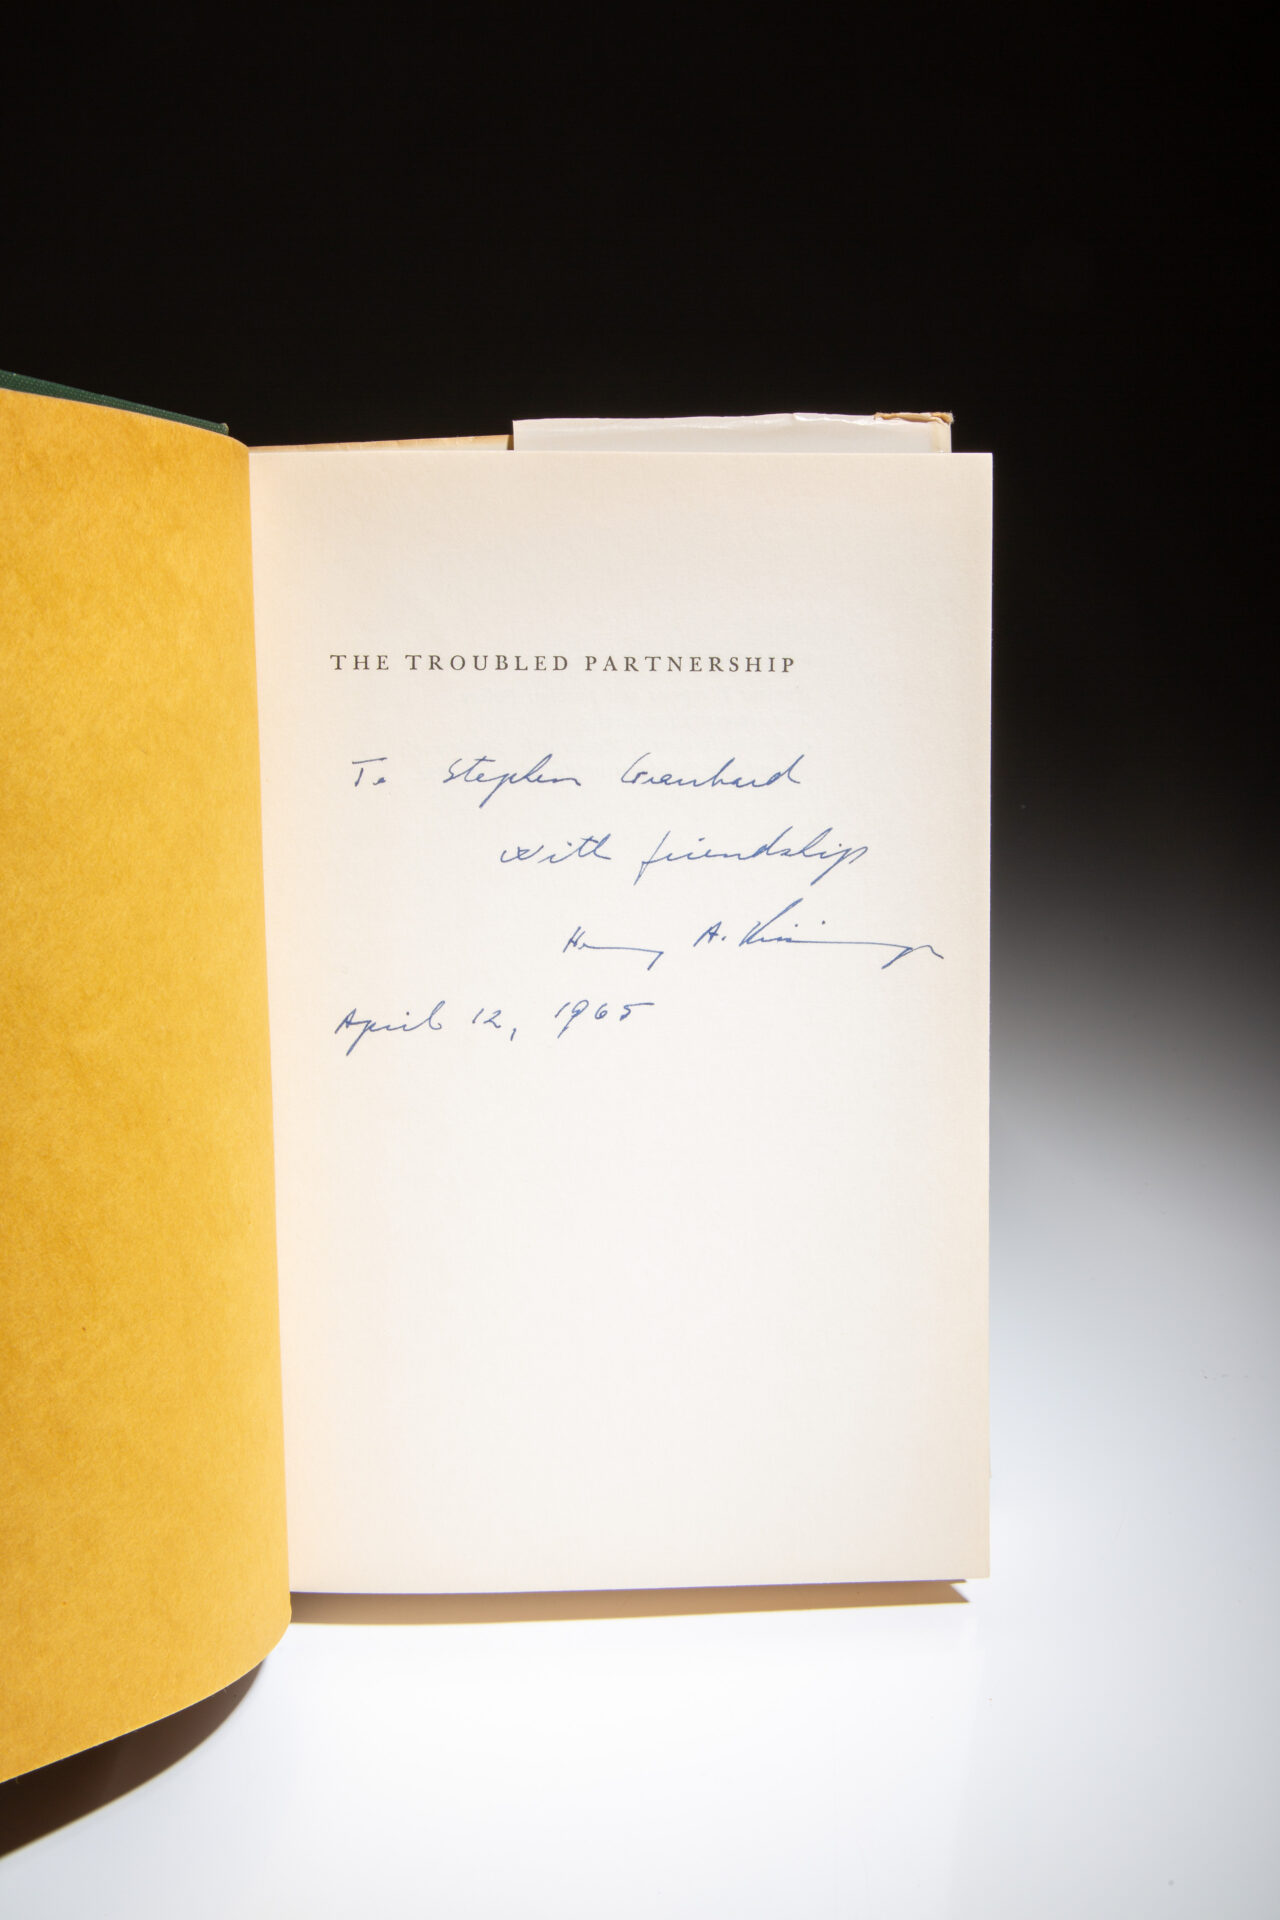 THE TROUBLED PARTNERSHIP
To Stephen Graubard
with friendship
Henry A. Kissinger
April 12, 1965